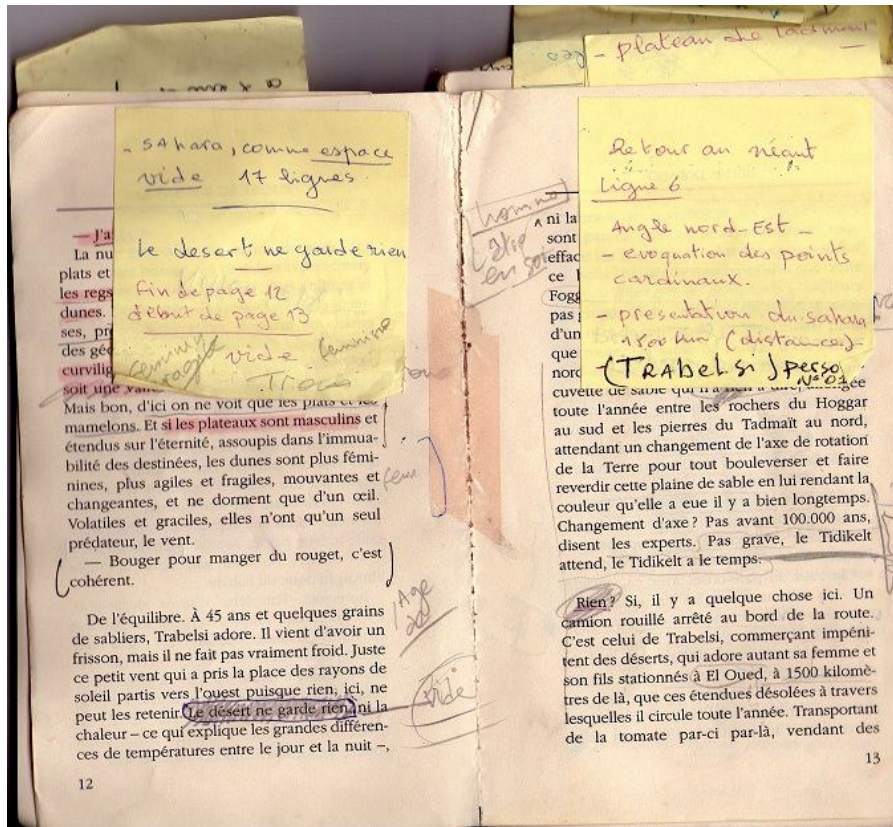 - plateau de Tadmait
- Sahara, comme espace
vide 17 lignes.
Le desert ne garde rien
fin de page 12
début de page 13
vide
féminine
fragile
féminine
— J'a
La nu
plats et
les regs
dunes.
ses, pr
des géo
curvilig
soit une
Mais bon, d'ici on ne voit que les plats et les
mamelons. Et si les plateaux sont masculins et
étendus sur l'éternité, assoupis dans l'immua-
bilité des destinées, les dunes sont plus fémi-
nines, plus agiles et fragiles, mouvantes et
changeantes, et ne dorment que d'un œil.
Volatiles et graciles, elles n'ont qu'un seul
prédateur, le vent.
— Bouger pour manger du rouget, c'est
cohérent.
De l'équilibre. À 45 ans et quelques grains
de sabliers, Trabelsi adore. Il vient d'avoir un
frisson, mais il ne fait pas vraiment froid. Juste
ce petit vent qui a pris la place des rayons de
soleil partis vers l'ouest puisque rien, ici, ne
peut les retenir. Le désert ne garde rien, ni la
chaleur – ce qui explique les grandes différen-
ces de températures entre le jour et la nuit –,
12
fem
Age
vide
homme
être
en soi
Retour au néant
Ligne 6
Angle nord-Est -
- evoquation des points
cardinaux.
- presentation du sahara
1500 km (distance)-
(Trabelsi) perso
N° 01
ni la
sont
effac
ce l
Fogg
pas
d'un
que
nord
cuvette de sable qui n'a rien à dire, allongée
toute l'année entre les rochers du Hoggar
au sud et les pierres du Tadmaït au nord,
attendant un changement de l'axe de rotation
de la Terre pour tout bouleverser et faire
reverdir cette plaine de sable en lui rendant la
couleur qu'elle a eue il y a bien longtemps.
Changement d'axe ? Pas avant 100.000 ans,
disent les experts. Pas grave, le Tidikelt
attend, le Tidikelt a le temps.
Rien ? Si, il y a quelque chose ici. Un
camion rouillé arrêté au bord de la route.
C'est celui de Trabelsi, commerçant impéni-
tent des déserts, qui adore autant sa femme et
son fils stationnés à El Oued, à 1500 kilomè-
tres de là, que ces étendues désolées à travers
lesquelles il circule toute l'année. Transportant
de la tomate par-ci par-là, vendant des
13